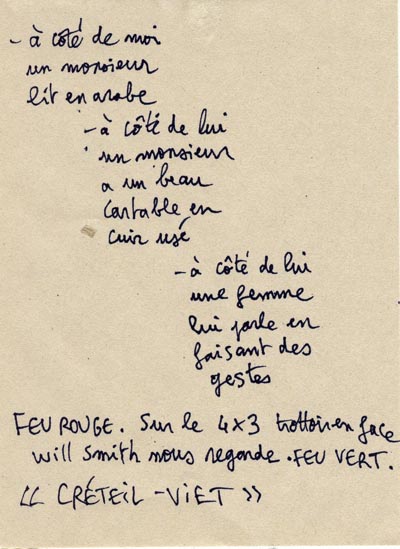 - à côté de moi
un monsieur
lit en arabe
- à côté de lui
un monsieur
a un beau
cartable en
cuir usé
- à côté de lui
une femme
lui parle en
faisant des
gestes
FEU ROUGE. Sur le 4x3 trottoir en face
will smith nous regarde. FEU VERT.
<< CRÉTEIL - VIET >>